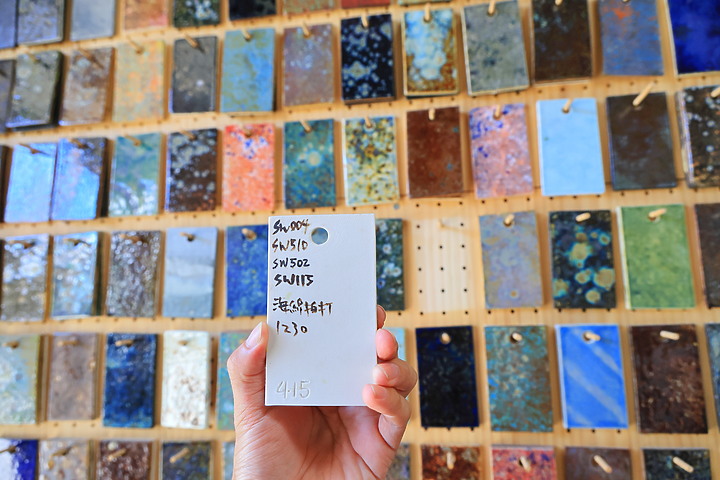 SW004
SW510
SW502
SW115
海綿拍打
1230
4.15